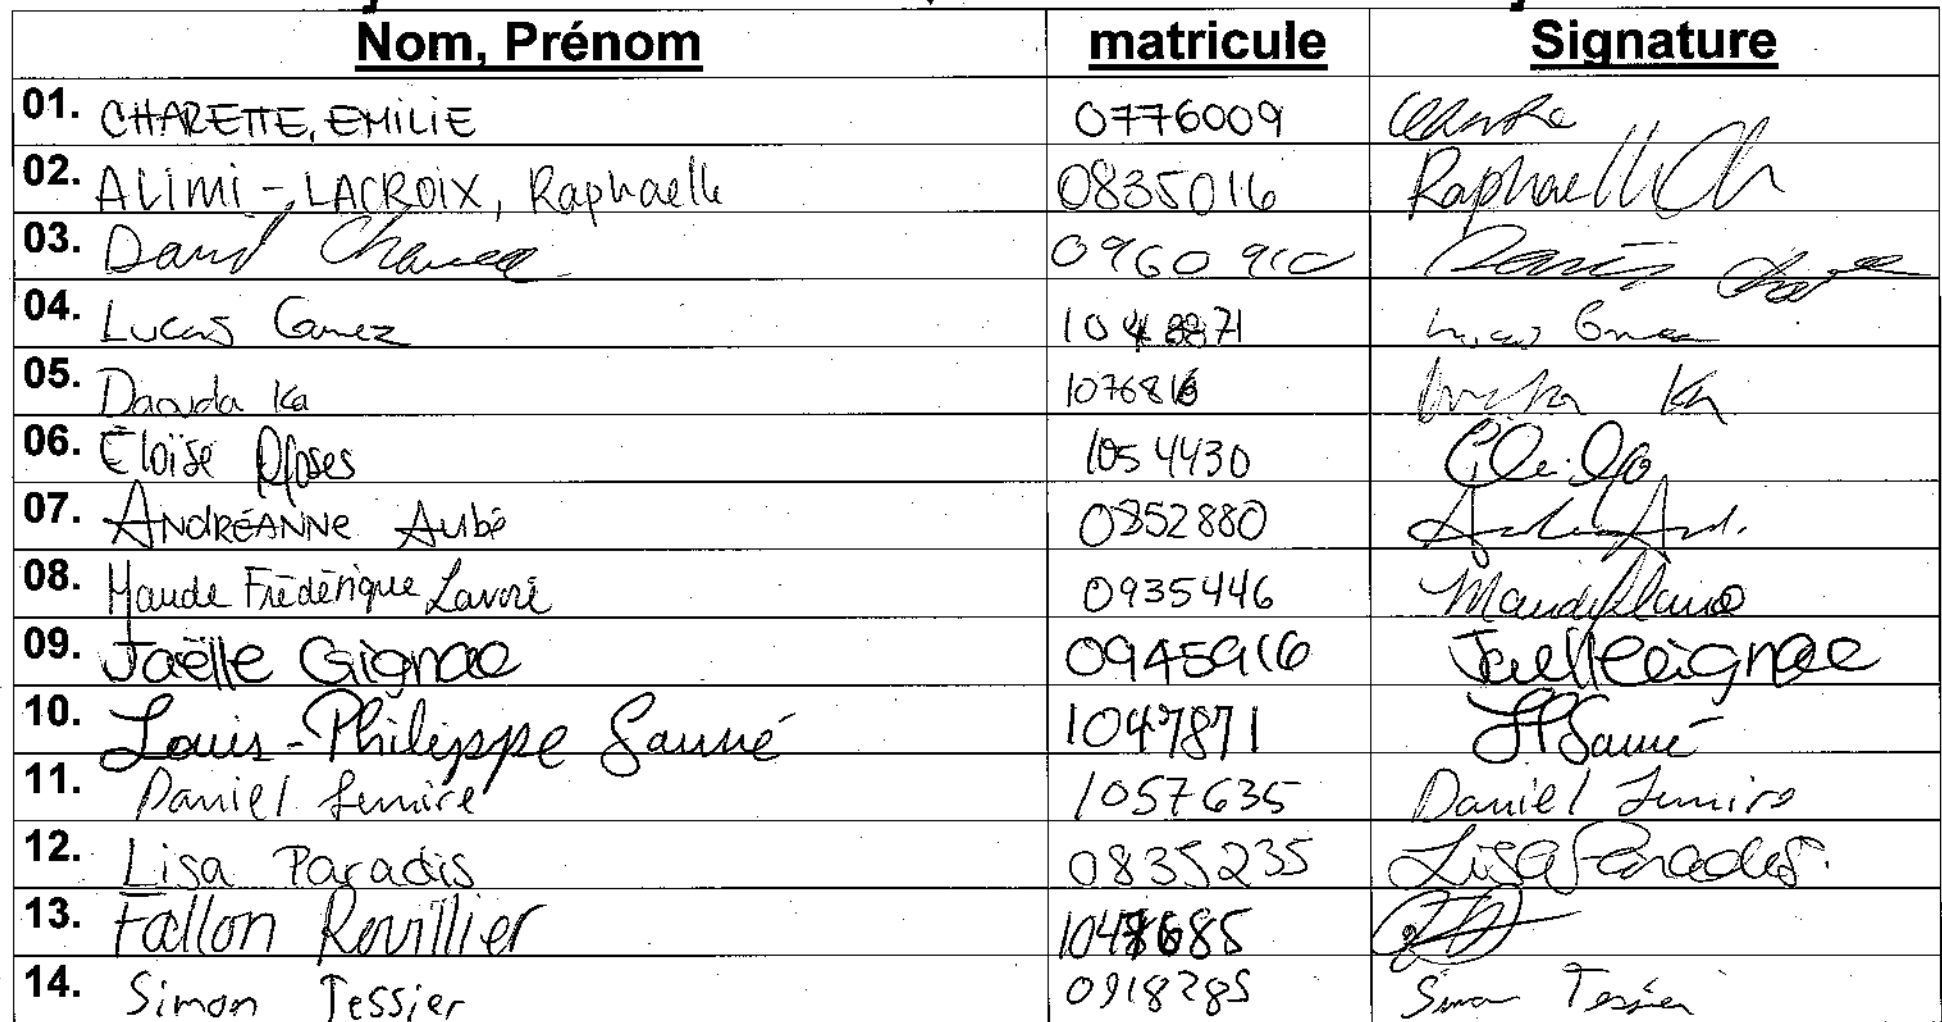 Nom, Prénom matricule Signature
01. CHARETTE, EMILIE 0776009
02. ALIMI-LACROIX, Raphaelle 0835016 Raphaelle
03. David 0960910
04. Lucas Gamez
05. Daouda Ka 1076816 Ka
06. Éloïse 1054430
07. ANDRÉANNE Aubé 0852880
08. Maude Frédérique Lavoie 0935446
09. Joëlle Gignac 0945916 Joelle Gignac
10. Louis-Philippe Sauvé 1047871 LPSauvé
11. Daniel Lemire 1057635 Daniel Lemire
12. Lisa Paradis 0835235 Lisa Paradis
13. Fallon Rouillier
14. Simon Tessier 0918285 Simon Tessier